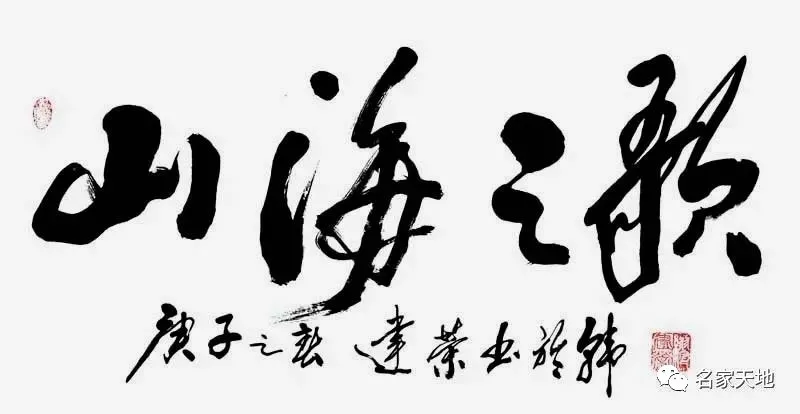 山海之歌
庚子之春 達荣书于韩
名家天地